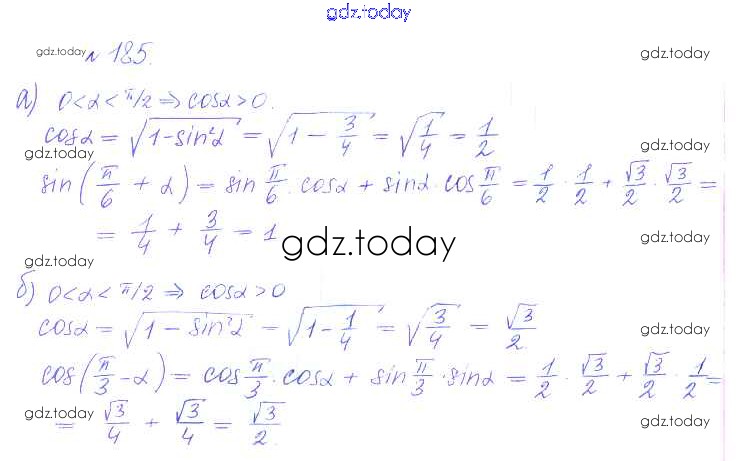 gdz.today
gdz.today № 185. gdz.today
а) 0<α<π/2 ⇒ cosα>0.
cosα = √(1-sin²α) = √(1 - 3/4) = √(1/4) = 1/2
gdz.today gdz.today
sin(π/6 + α) = sin π/6 · cosα + sinα · cos π/6 = 1/2 · 1/2 + √3/2 · √3/2 =
= 1/4 + 3/4 = 1 gdz.today gdz.today
gdz.today
б) 0<α<π/2 ⇒ cosα>0
cosα = √(1 - sin²α) = √(1 - 1/4) = √(3/4) = √3/2. gdz.today
cos(π/3 - α) = cos π/3 · cosα + sin π/3 · sinα = 1/2 · √3/2 + √3/2 · 1/2 =
gdz.today gdz.today
= √3/4 + √3/4 = √3/2.